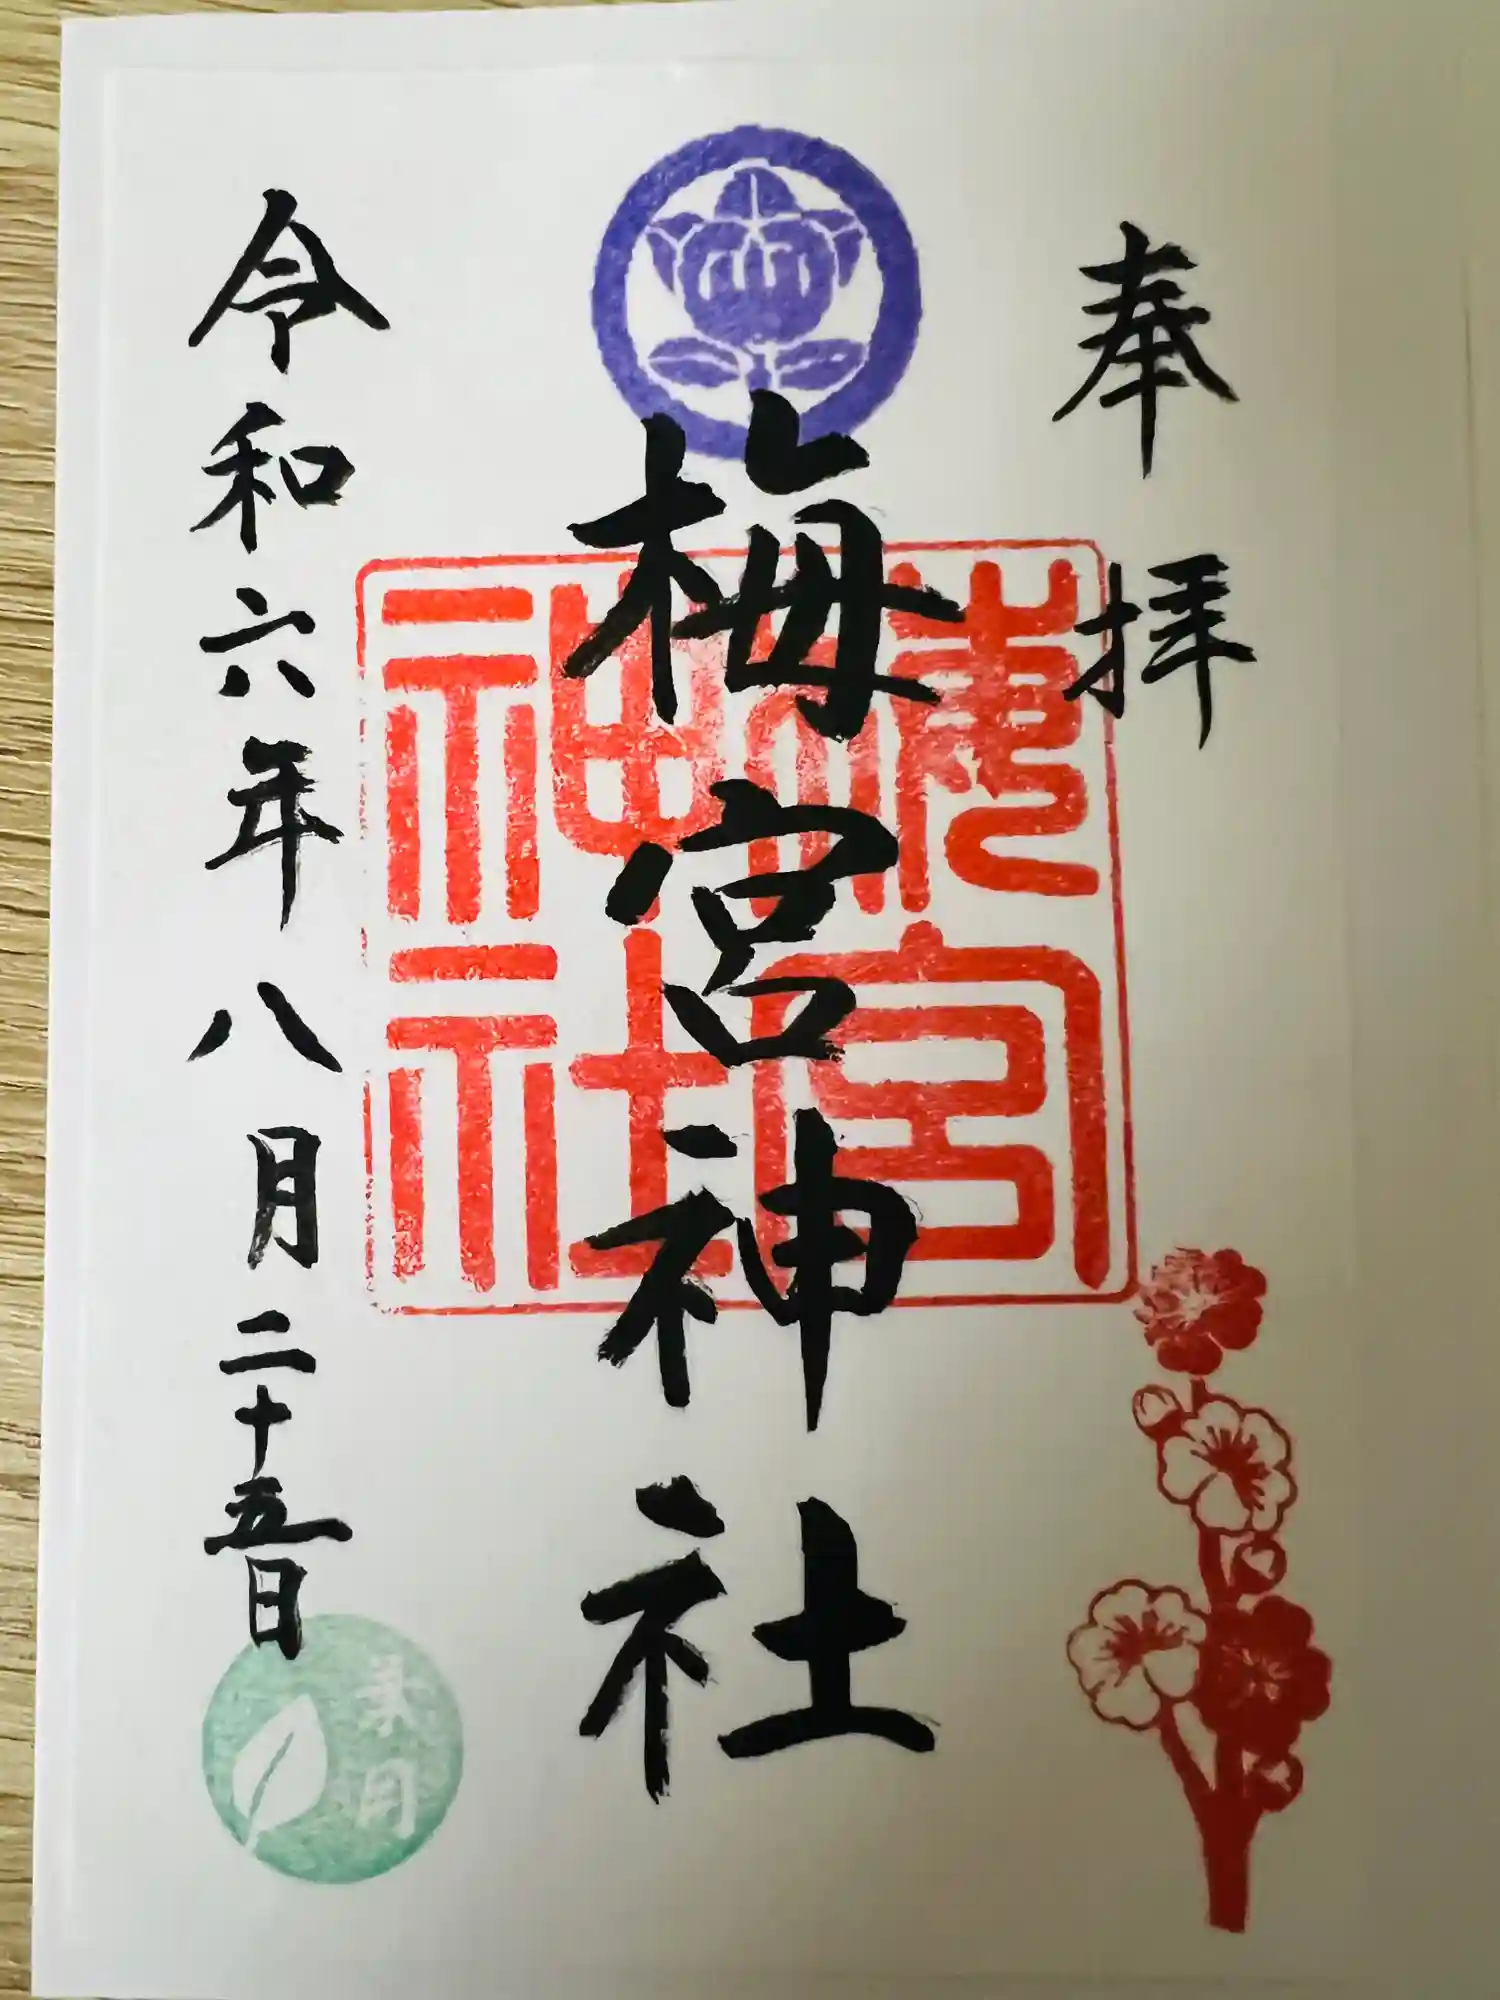 奉拝
梅宮神社
梅宮神社
令和六年八月二十五日
葉月